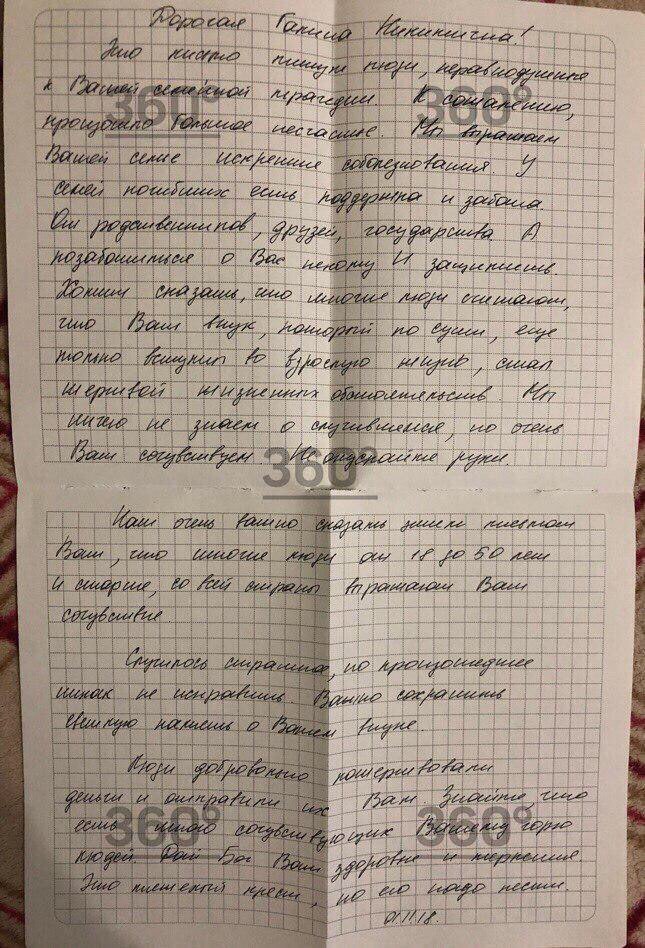 Дорогая Галина Никитична!
Это письмо пишут люди, неравнодушные
к Вашей семейной трагедии. К сожалению,
произошло большое несчастье. Мы выражаем
Вашей семье искренние соболезнования. У
семей погибших есть поддержка и забота.
От родственников, друзей, государства. А
позаботиться о Вас некому И защитить.
Хотим сказать, что многие люди считают,
что Ваш внук, который по сути, еще
только вступил во взрослую жизнь, стал
жертвой жизненных обстоятельств. Мы
ничего не знаем о случившемся, но очень
Вам сочувствуем. Не опускайте руки.
360°
360°
360°
Нам очень важно сказать этим письмом
Вам, что многие люди от 18 до 50 лет
и старше, со всей страны выражают Вам
сочувствие
Случилось страшное, но произошедшее
никак не исправить. Важно сохранить
светлую память о Вашем внуке.
Люди добровольно пожертвовали
деньги и отправили их Вам Знайте, что
есть много сочувствующих Вашему горю
людей Дай Бог Вам здоровья и терпения.
Это тяжелый крест, но его надо нести.
01.11.18.
360°
360°